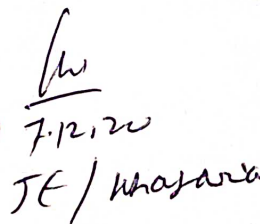 7.12.20
JE / Khasaria